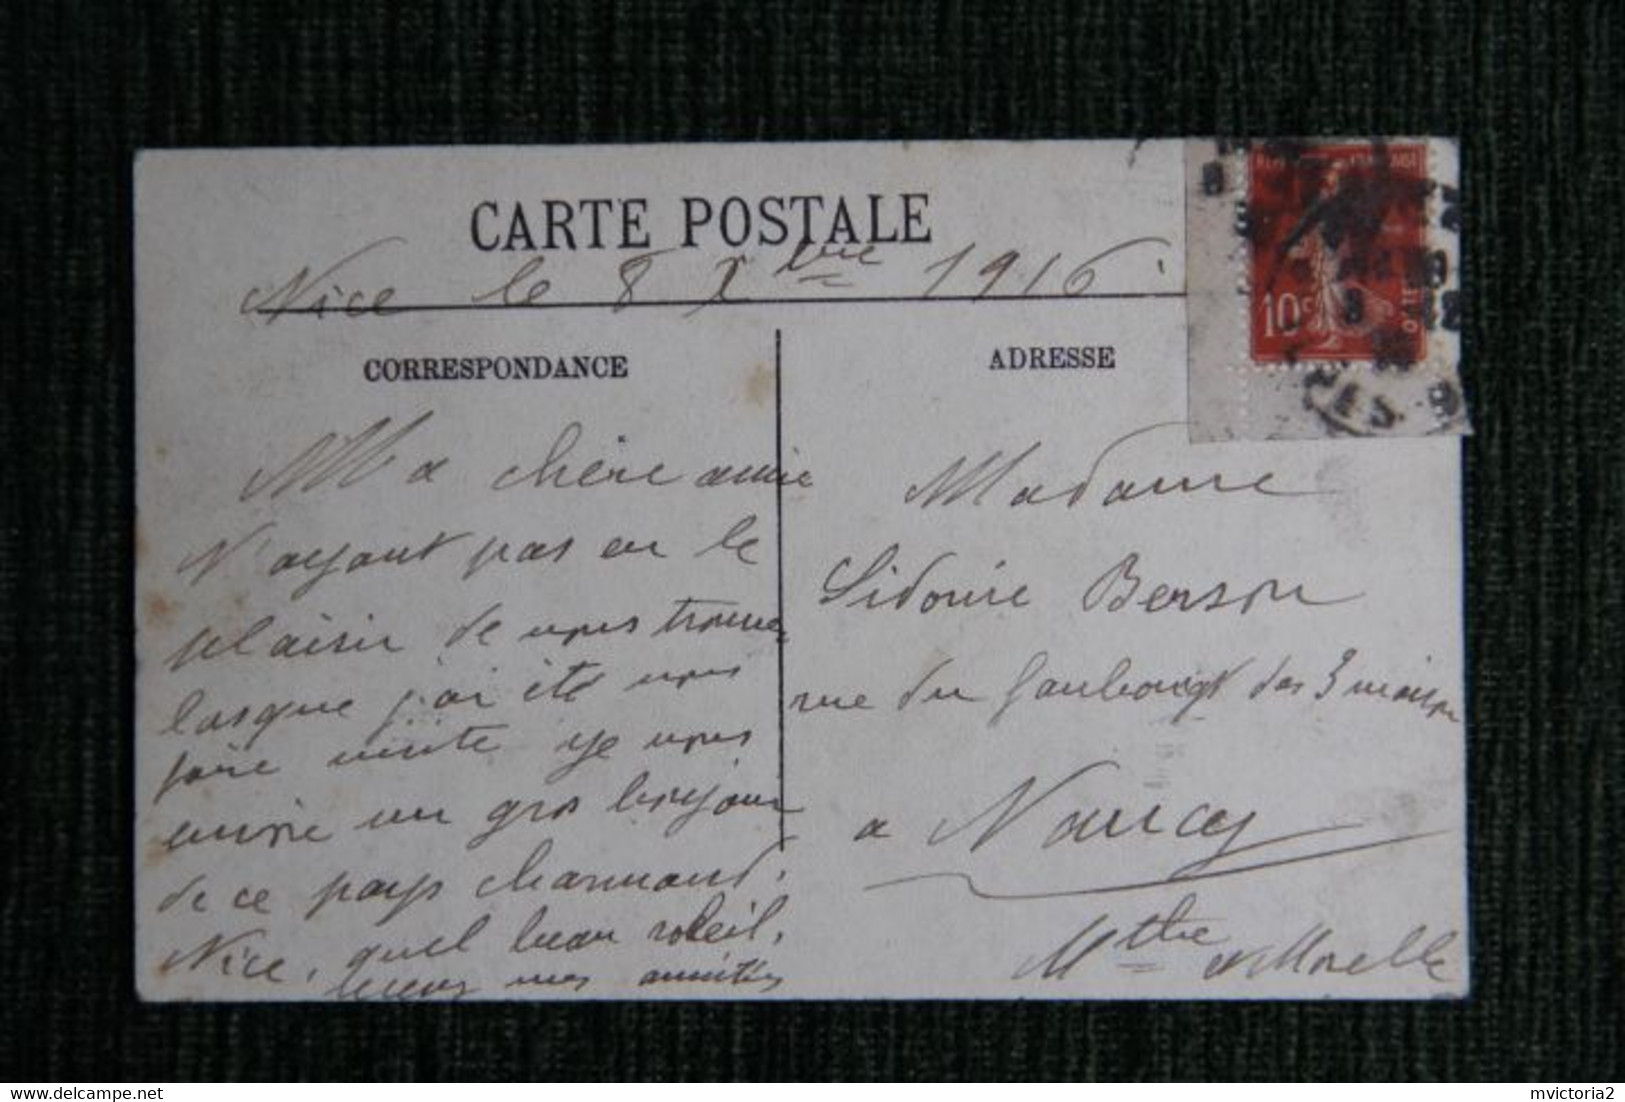 CARTE POSTALE
Nice le 8 Xbre 1916
CORRESPONDANCE
Ma chère amie
N'ayant pas eu le
plaisir de vous trouver
lorsque j'ai été vous
faire visite je vous
envoie un gros bonjour
de ce pays charmand.
Nice, quel beau soleil,
mes amitiés
ADRESSE
Madame
Sidonie Berson
rue du faubourg des 3 maison
a Nancy
Mthe &Moselle
10c
delcampe.net
mvictoria2